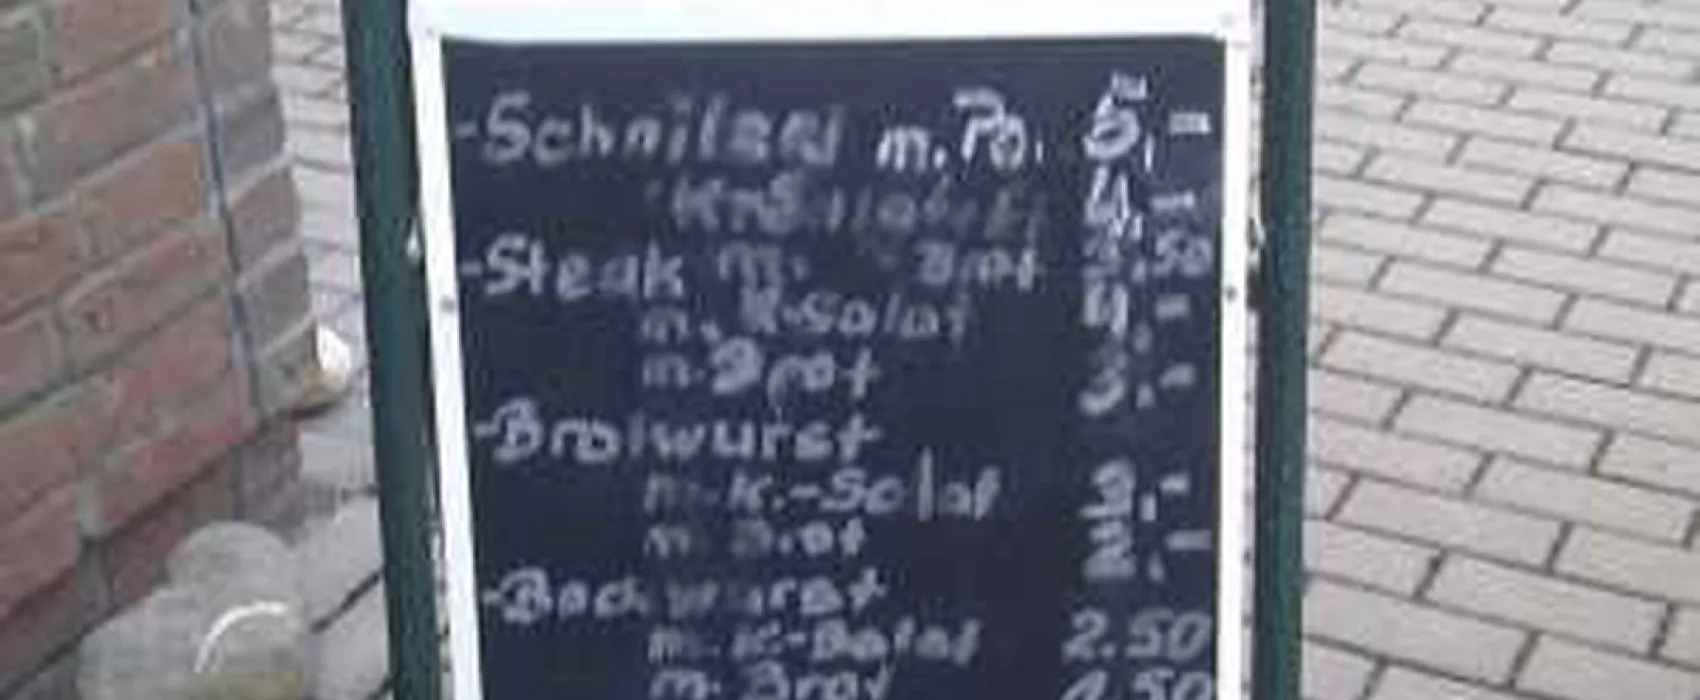 -Schnitzel m. Po. 5,-
4,-
-Steak m. Brot ,50
m. K-Salat 4,-
m. Brot 3.-
-Bratwurst
m. K.-Salat 3.-
m. Brot 2.-
-Bockwurst
m. K-Salat 2.50
m. Brot 1.50